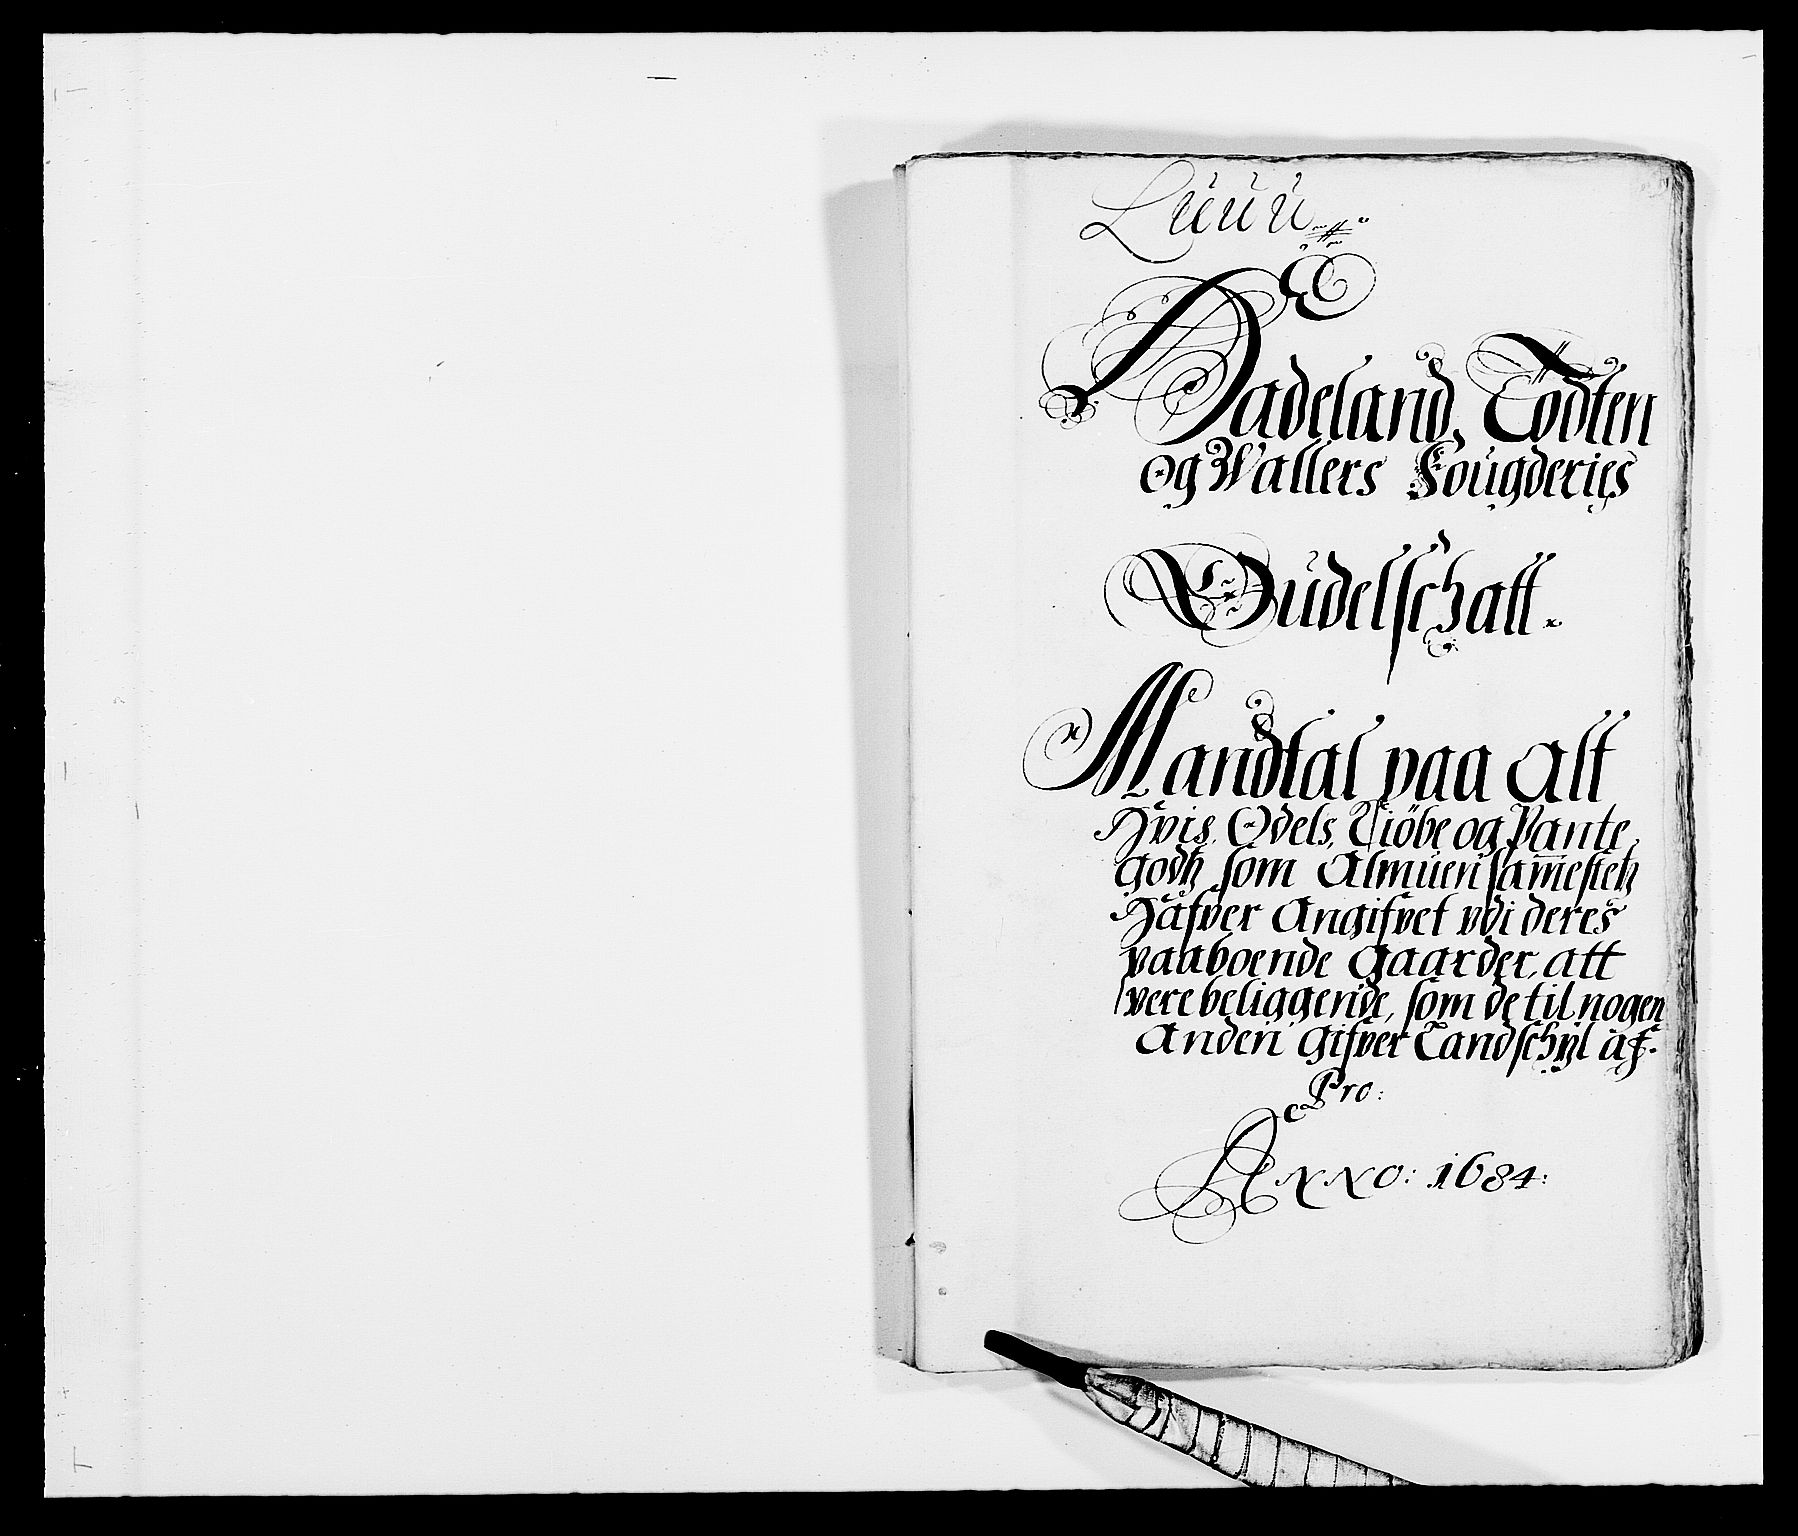 Luuu
Hadeland, Todten
og Wallers Fougderies
Oudelschatt.
Mandtal paa alt
Hvis, Odels, Kiöbe og Pante,
godtz som Almuen sam̅estetz
Hafver Angifvet udi deres
paaboende gaarder, att
vere beliggende, som de til nogen
Anden gifver Landschyl af.
Pro:
Anno: 1684: